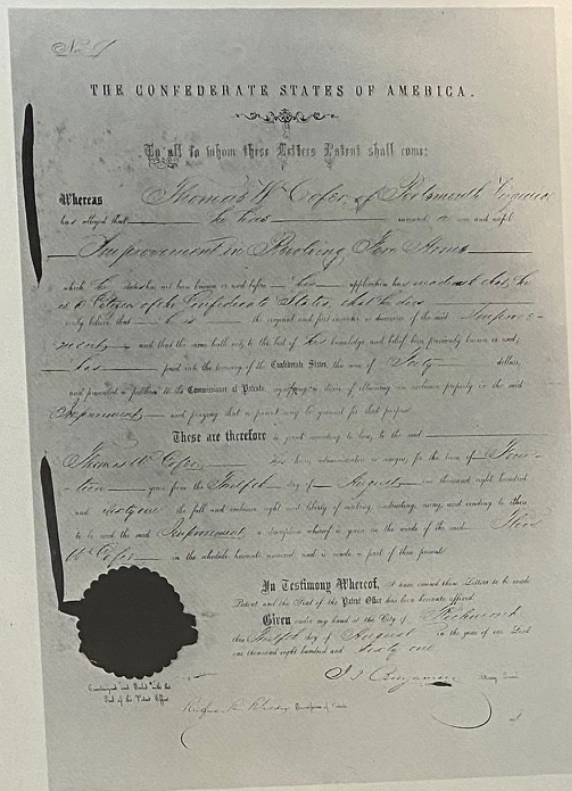 No 9
THE CONFEDERATE STATES OF AMERICA.
To all to whom these Letters Patent shall come:
Whereas Thomas W Cofer of Portsmouth Virginia
has alleged that he has invented a new and useful
Improvement in Revolving Fire Arms
which he states has not been known or used before his application has made oath that he
is a Citizen of the Confederate States, that he does
verily believe that he is the original and first inventor or discoverer of the said Improve-
ment and that the same hath not to the best of his knowledge and belief been previously known or used;
has paid into the treasury of the Confederate States, the sum of Forty dollars,
and presented a petition to the Commissioner of Patents, signifying a desire of obtaining an exclusive property in the said
Improvement and praying that a patent may be granted for that purpose.
These are therefore to grant according to law, to the said
Thomas W Cofer his heirs, administrators or assigns, for the term of Four-
teen years from the Twelfth day of August one thousand eight hundred
and sixty one the full and exclusive right and liberty of making, constructing, using, and vending to others
to be used the said Improvement, a description whereof is given in the words of the said Thos
W Cofer in the schedule hereunto annexed, and is made a part of these presents.
In Testimony Whereof, I have caused these Letters to be made
Patent and the Seal of the Patent Office has been hereunto affixed.
Given under my hand at the City of Richmond
this Twelfth day of August in the year of our Lord
one thousand eight hundred and sixty one
J P Benjamin
Countersigned and Sealed with the
Seal of the Patent Office
Rufus R. Rhodes Commissioner of Patents